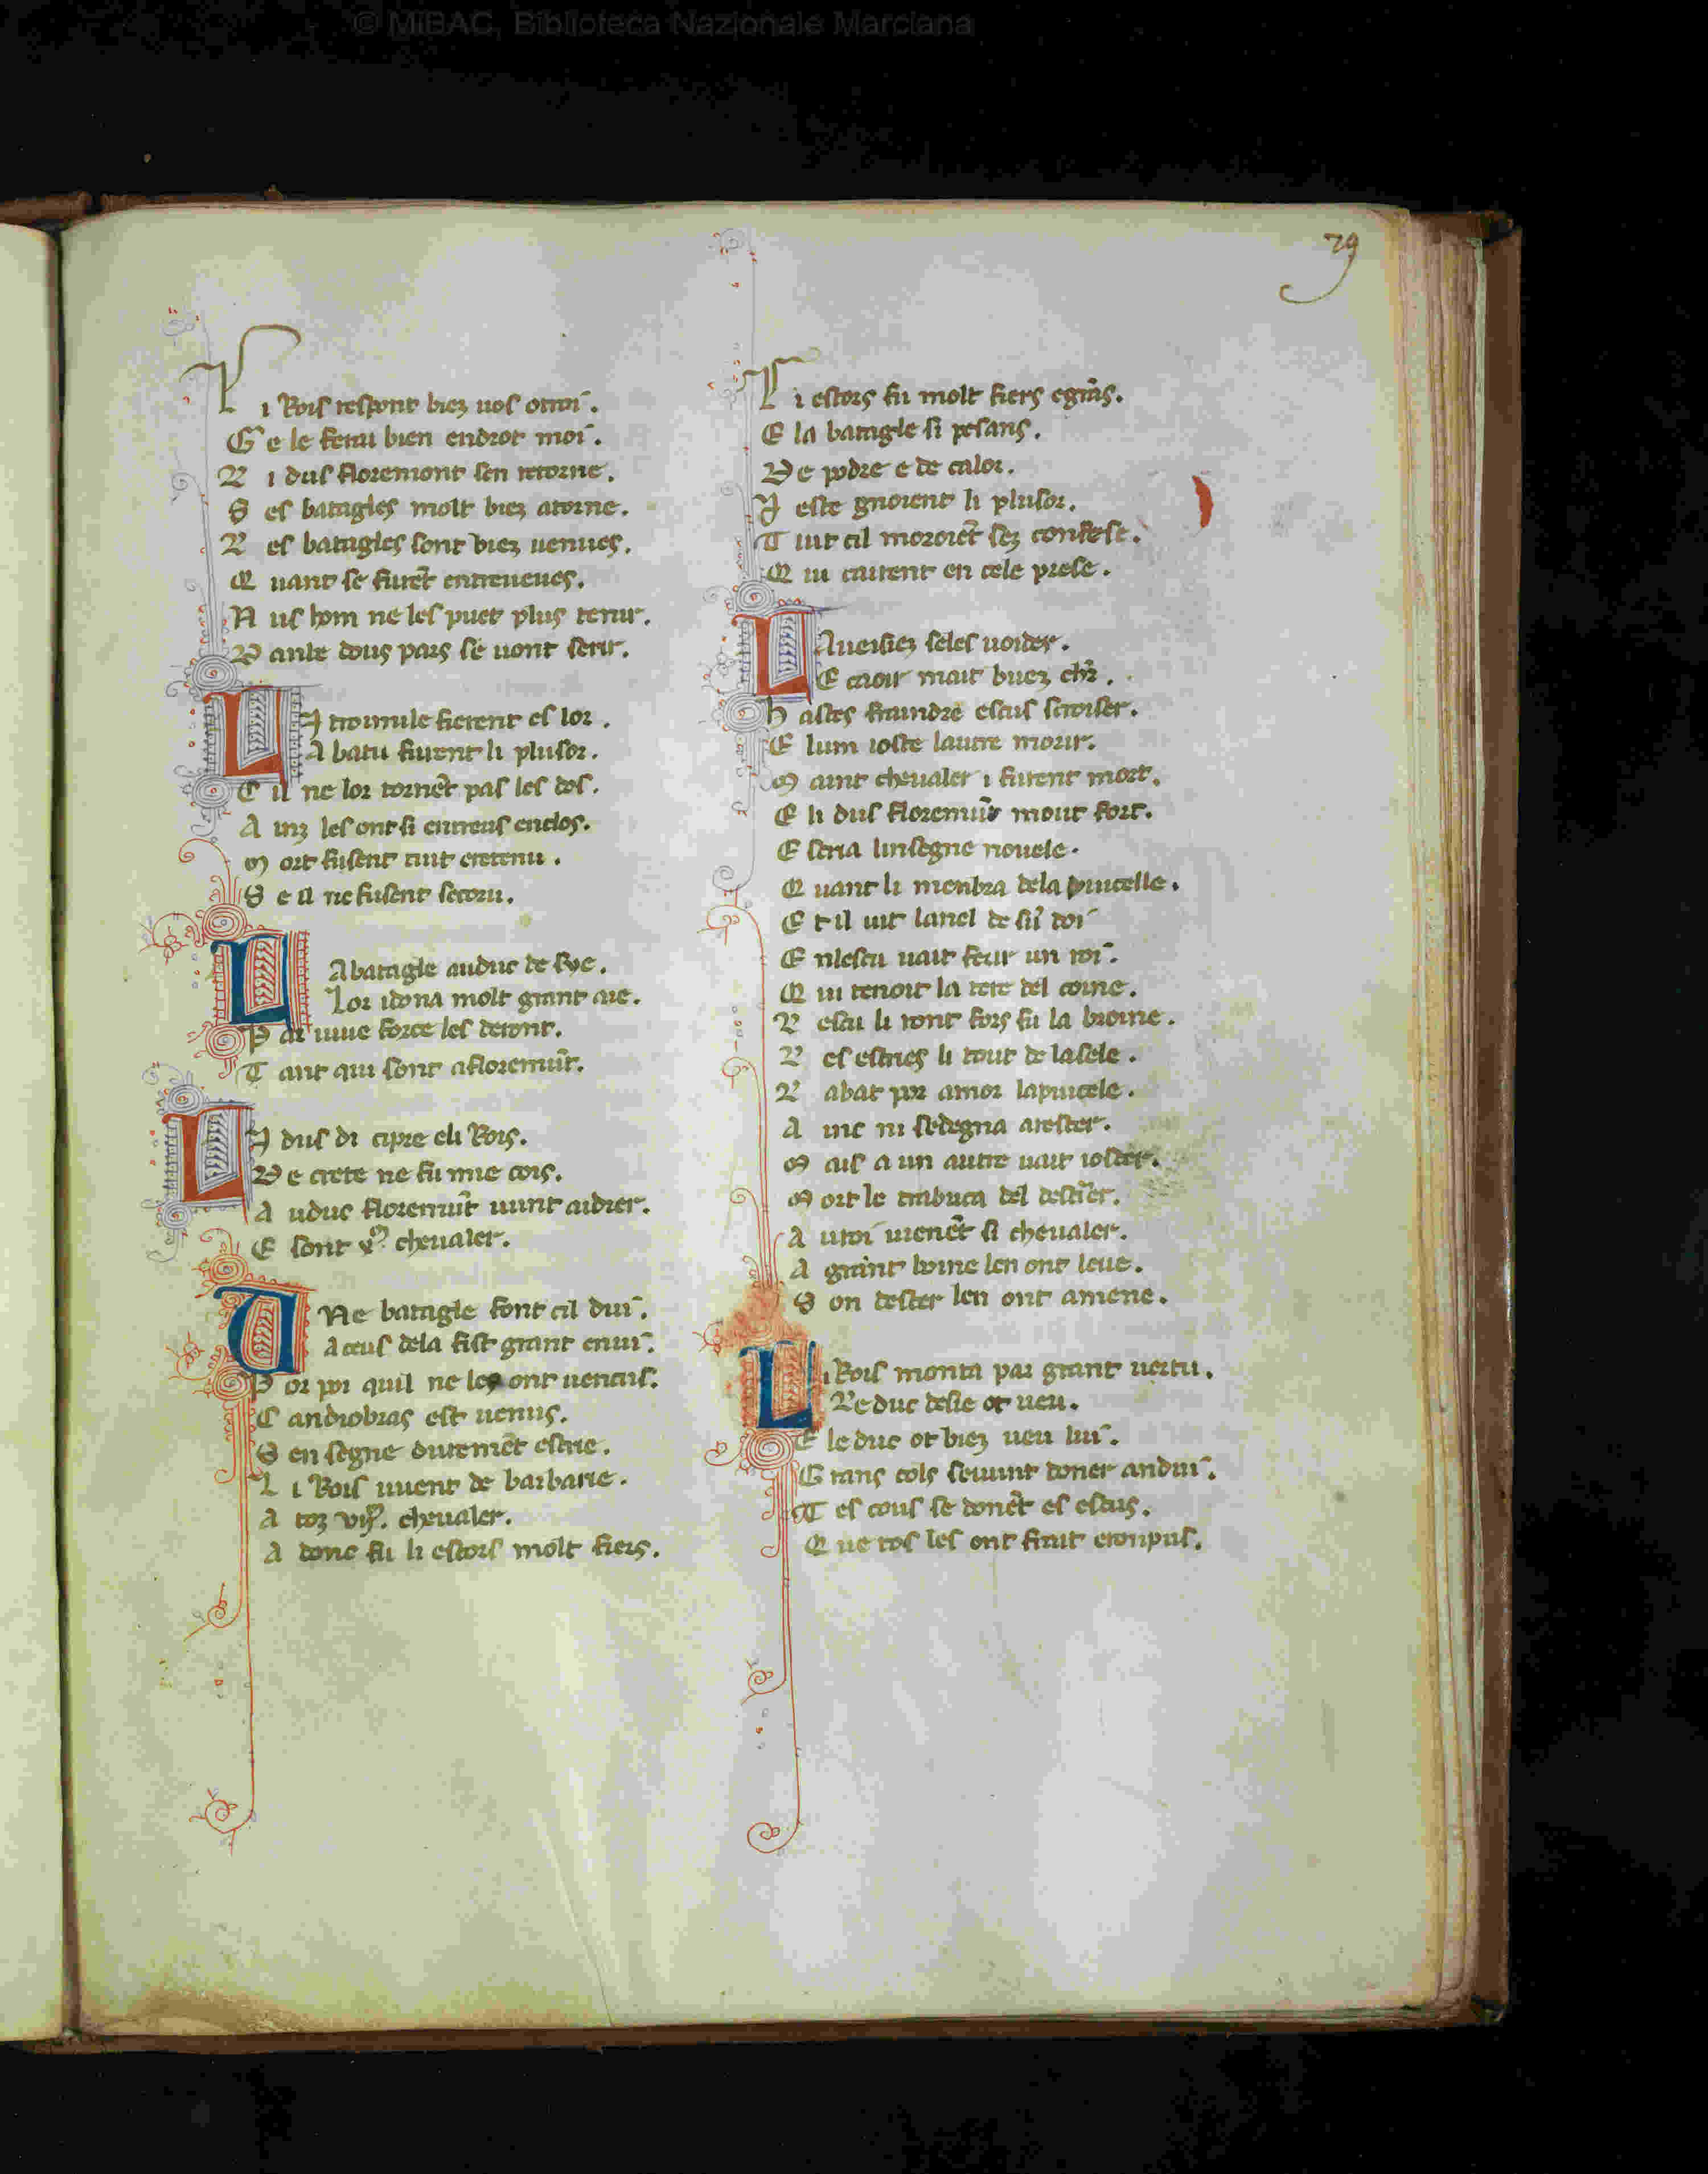 © MiBAC, Biblioteca Nazionale Marciana
79
L i Rois respont biez uos otroi.
G e le ferai bien endrot moi.
L i dus floremont sen retorne.
S es batagles molt biez atorne.
L es batagles sont biez uenues.
Q uant se furẽt entreueues.
N us hom ne les puet plus tenir.
D anbe dous pars se uont ferir.
LI troimile fierent es lor.
A batu furent li plusor.
C il ne lor tornẽt pas les dos.
A inz les ont si entreus enclos.
M ort fusent tuit eretenu.
S e il ne fusent secoru.
LA batagle auduc de
Lor idona molt grant aie.
P ar uiue force les deront.
T ant qui sont afloremũt.
LI dus di cipre eli Rois.
D e crete ne fu mie cois.
A uduc floremũt uunt aidier.
E sont cheualer.
UNe batagle font cil dui.
A ceus dela fist grant enui.
P or poi quil ne les ont uencus.
C andiobras est uenus.
S en segne duremẽt escrie.
L i Rois uient de barbarie.
A toz cheualer.
A donc fu li estors molt fiers.
L i estors fu molt fiers egrãs.
E la batagle si pesans.
D e podre e de calor.
I este gnoient li plusor.
T uit cil moroiẽt sez confese.
Q ui cairent en cele prese.
LA ueisiez seles uoider.
E caoir mait buez
H astes fraindre escus scroiser.
E lum ioste lautre morir.
M aint cheualer i furent mort.
E li dus floremũt mout fort.
E scria linsegne nouele.
Q uant li menbra dela puicelle.
E t il uit lanel de sũ doi
E nlescu uait ferir un roi.
Q ui tenoit la tere del coine.
L escu li ront fors fu la broine.
L es estries li tout de lasele.
L abat por amor lapuicele.
A inc ni sedegna arester.
M ais a un autre uait ioster.
M ort le trabuca del
A uroi uienẽt si cheualer.
A grant boine len ont leue.
S on dester len ont amene.
Li Rois monta par grant uertu.
Le duc delie ot ueu.
E le duc ot biez ueu lui.
G rans cols seuunt doner andui.
T es cous se donẽt es escus.
Q ue tos les ont frait eronpus.